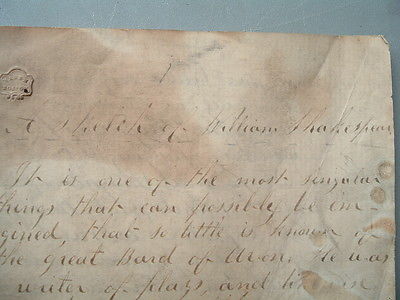 A Sketch of William Shakespear
It is one of the most singular
things that can possibly be em-
gined, that so little is known of
the great Bard of Avon. He was
writer of plays, and